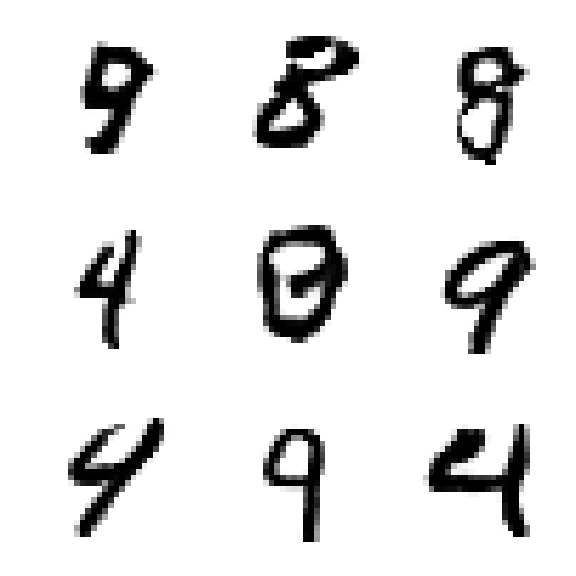 9 8 8
4 0 9
4 9 4